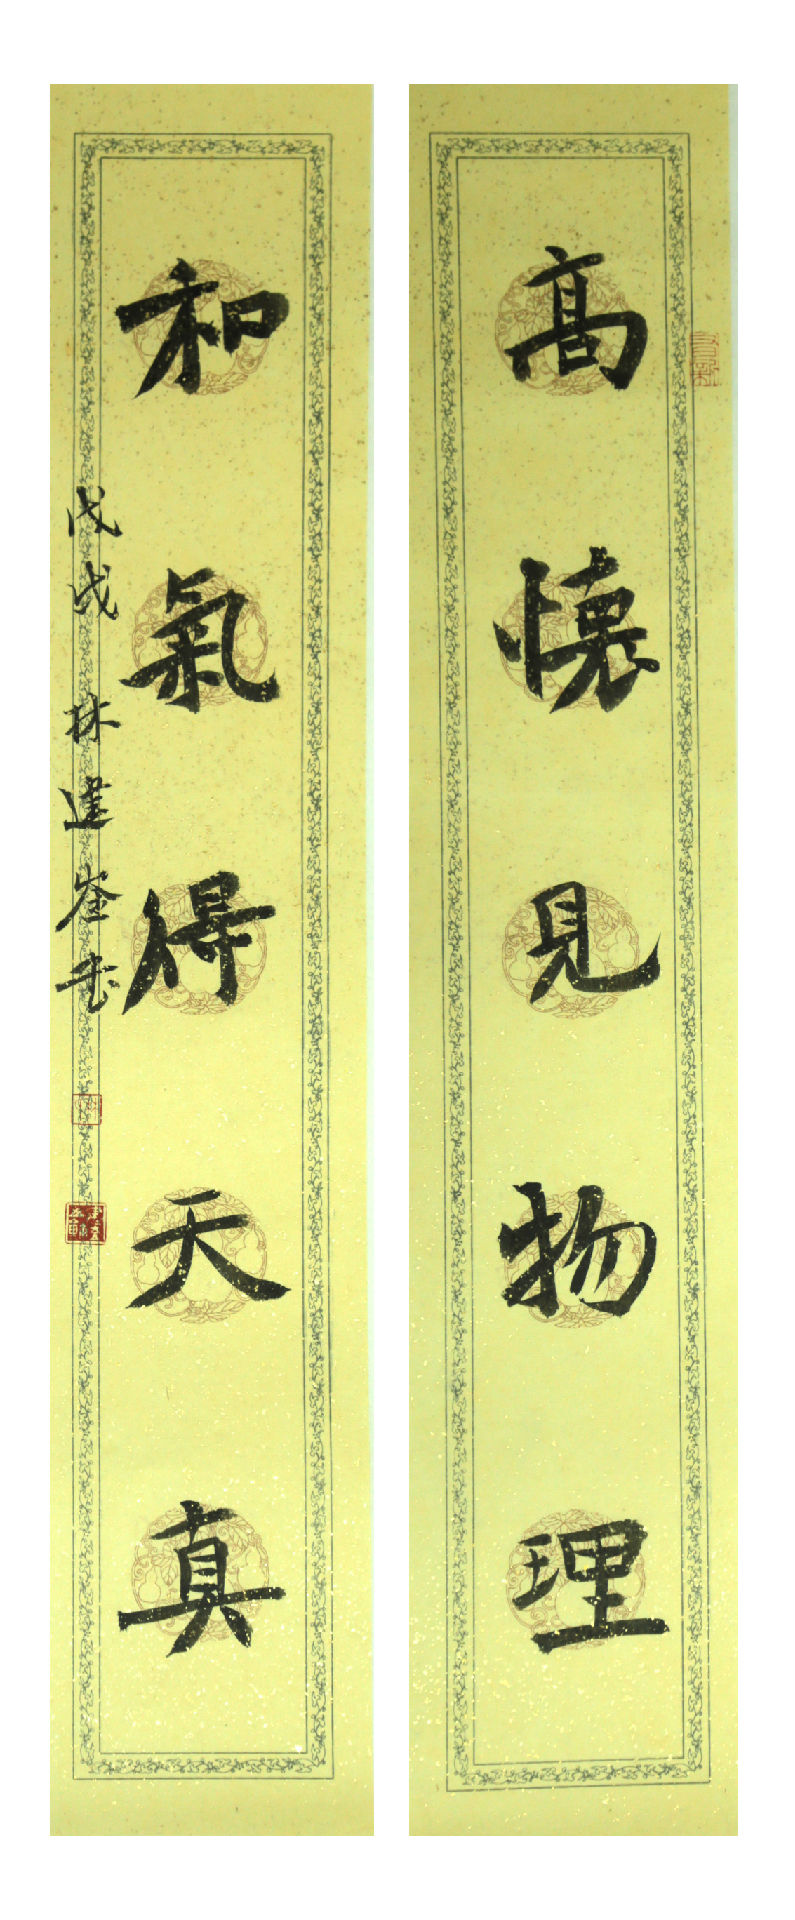 高懷見物理
和氣得天真
戊戌 林建奎书